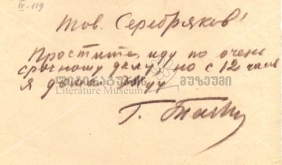 IV-119
Тов. Серебряков!
Простите, иду по очень
срочному делу, но с 12 часов
ლიტერატურის მუზეუმი
я дома буду
Literature Museum
Г.